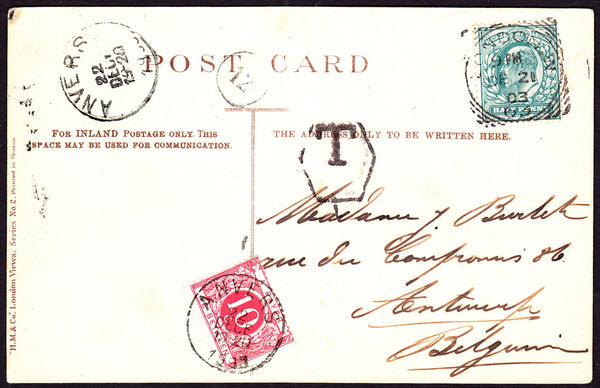 POST CARD
FOR INLAND POSTAGE ONLY. THIS
SPACE MAY BE USED FOR COMMUNICATION.
THE ADDRESS ONLY TO BE WRITTEN HERE.
ANVERS
22
DEC
12
T
PM
21
03
HALFPENNY
Madame J. Burlet
rue du Compromis 86
Antwerp
Belgium
ANVERS
10
"H.M.& Co." London Views. Series No. 2.